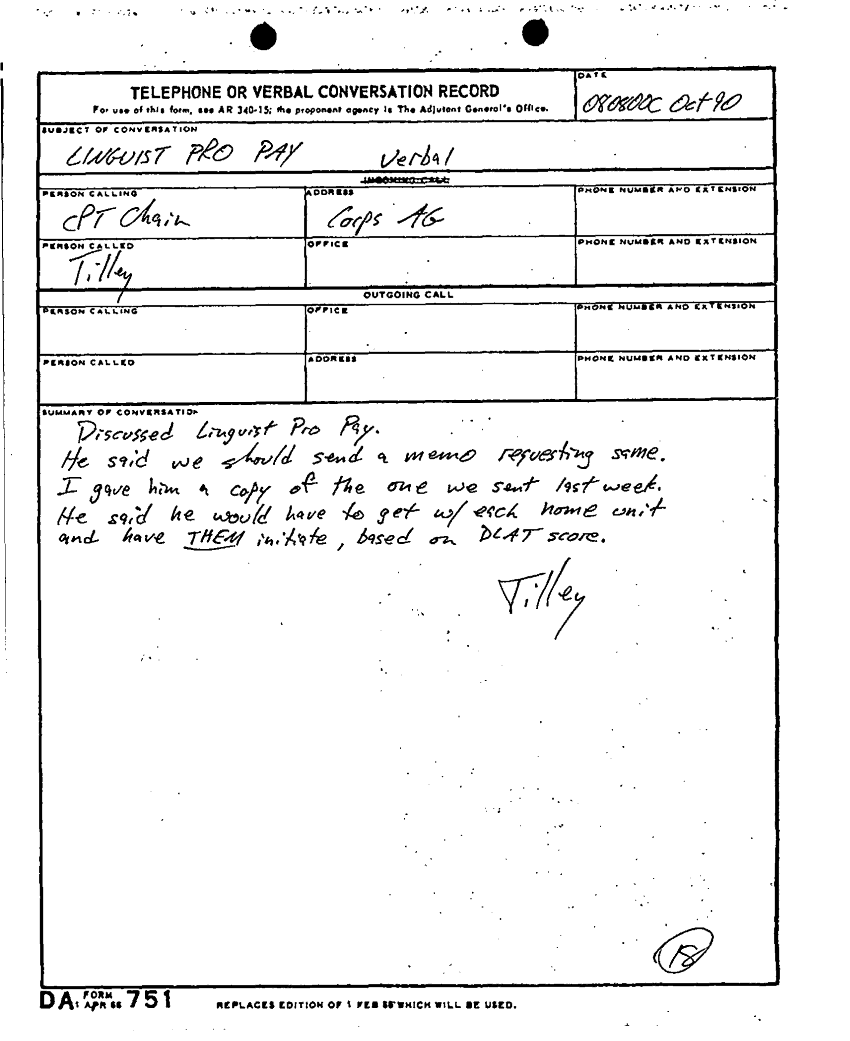 TELEPHONE OR VERBAL CONVERSATION RECORD
For use of this form, see AR 340-15; the proponent agency is The Adjutant General's Office.
DATE
080800C Oct 90
SUBJECT OF CONVERSATION
LINGUIST PRO PAY Verbal
INCOMING CALL
PERSON CALLING
CPT Chain
ADDRESS
Corps AG
PHONE NUMBER AND EXTENSION
PERSON CALLED
Tilley
OFFICE
PHONE NUMBER AND EXTENSION
OUTGOING CALL
PERSON CALLING
OFFICE
PHONE NUMBER AND EXTENSION
PERSON CALLED
ADDRESS
PHONE NUMBER AND EXTENSION
SUMMARY OF CONVERSATION
Discussed Linguist Pro Pay.
He said we should send a memo requesting same.
I gave him a copy of the one we sent last week.
He said he would have to get w/ each home unit
and have THEM initiate, based on DLAT score.
Tilley
18
DA FORM 751
1 APR 66
REPLACES EDITION OF 1 FEB 58 WHICH WILL BE USED.